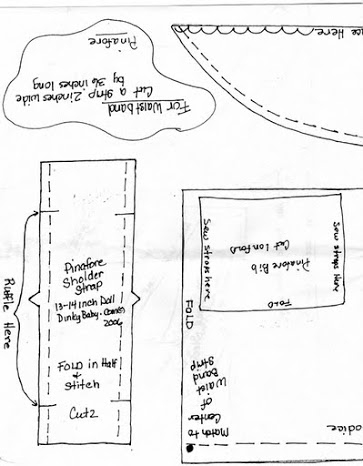 Pinafore
For Waistband
Cut a strip 2 inches wide
by 36 inches long
ce Here
Ruffle Here
Pinafore
Sholder
Strap
13-14 Inch Doll
Dinky Baby-
2006
Fold in Half
+
Stitch
Cut 2
Sew straps here
Sew straps here
Pinafore Bib
Cut 1 on Fold
FOLD
FOLD
Match to
Center
of
Waist
Band
Strip
odice